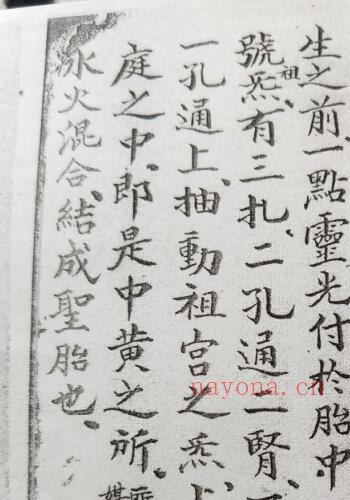 生之前、一點靈光付於胎中
號祖炁、有三扎、二孔通二腎、
一孔通上、抽動祖宮之炁、上
庭之中、即是中黃之所、
水火混合、結成聖胎也、
nayona.cn